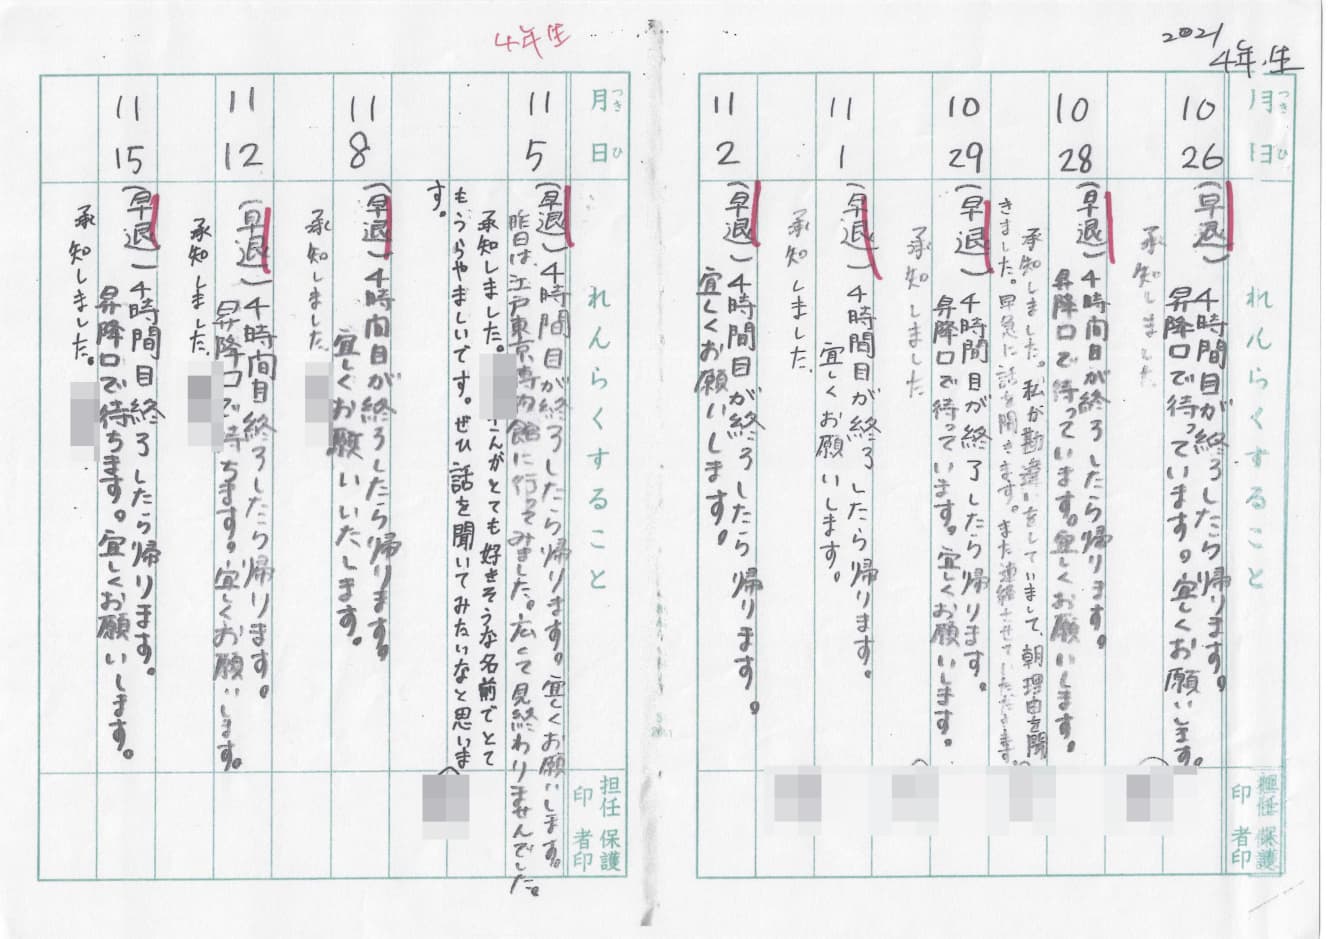 2021
4年生
月 つき
日 ひ
れんらくすること
担任印
保護者印
10
26
(早退) 4時間目が終了したら帰ります。
昇降口で待っています。宜しくお願いします。
承知しました
10
28
(早退) 4時間目が終了したら帰ります。
昇降口で待っています。宜しくお願いします。
承知しました。私が勘違いをしていまして、朝理由を聞
きました。早急に話を聞きます。また連絡させていただきます
10
29
(早退) 4時間目が終了したら帰ります。
昇降口で待っています。宜しくお願いします。
承知しました
11
1
(早退) 4時間目が終了したら帰ります。
宜しくお願いします。
承知しました
11
2
(早退) 4時間目が終了したら帰ります。
宜しくお願いします。
4年生
月 つき
日 ひ
れんらくすること
担任印
保護者印
11
5
(早退) 4時間目が終了したら帰ります。宜しくお願いします。
昨日は、江戸東京博物館に行ってみました。広くて見終わりませんでした。
承知しました。 さんがとても好きそうな名前でとて
もうらやましいです。ぜひ話を聞いてみたいなと思いま
す。
11
8
(早退) 4時間目が終了したら帰ります。
宜しくお願いいたします。
承知しました
11
12
(早退) 4時間目終了したら帰ります。
昇降口で待ちます。宜しくお願いします。
承知しました
11
15
(早退) 4時間目終了したら帰ります。
昇降口で待ちます。宜しくお願いします。
承知しました。